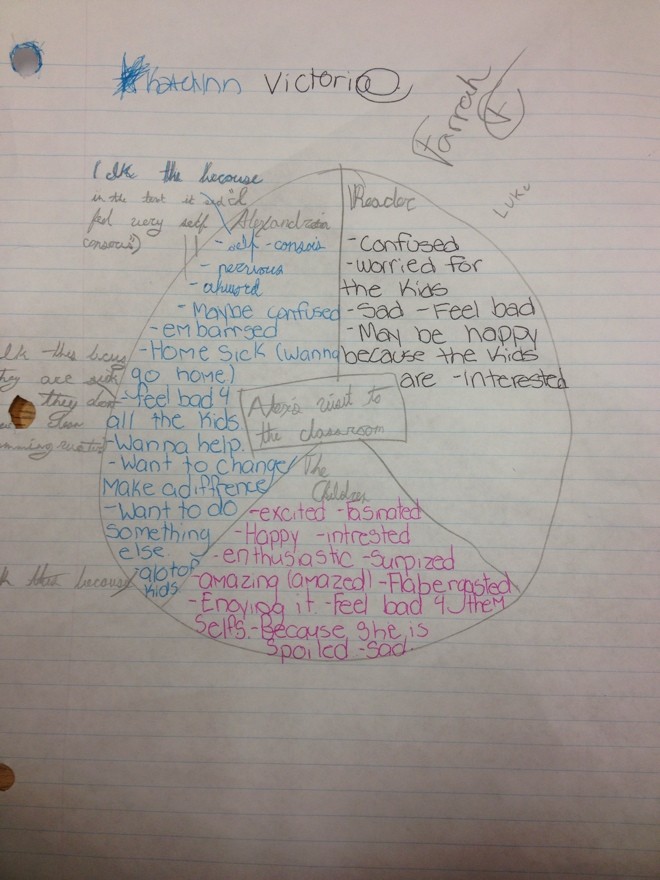 Victoria
Farrah
Luke
I the because
in the text it
feel very self
consious)
Reader
- Confused
- worried for
the Kids
- Sad - Feel bad
- May be happy
because the Kids
are - Interested
Alexandria
- self - consois
- nervious
- akword
- Maybe confused
- embarrsed
- Home sick (wanna
go home)
- feel bad 4
all the Kids
- Wanna help.
- Want to change/
Make a diffrence
- Want to do
something
else.
- alotof
Kids
this
they are sick
they dont
because
Alex's visit to
the classroom
The
Children
- excited - fasinated
- Happy - intrested
- enthusiastic - Surpized
- amazing (amazed) - Flabergasted
- Enoying it - Feel bad 4 them
Selfs. - Because she is
Spoiled - Sad.